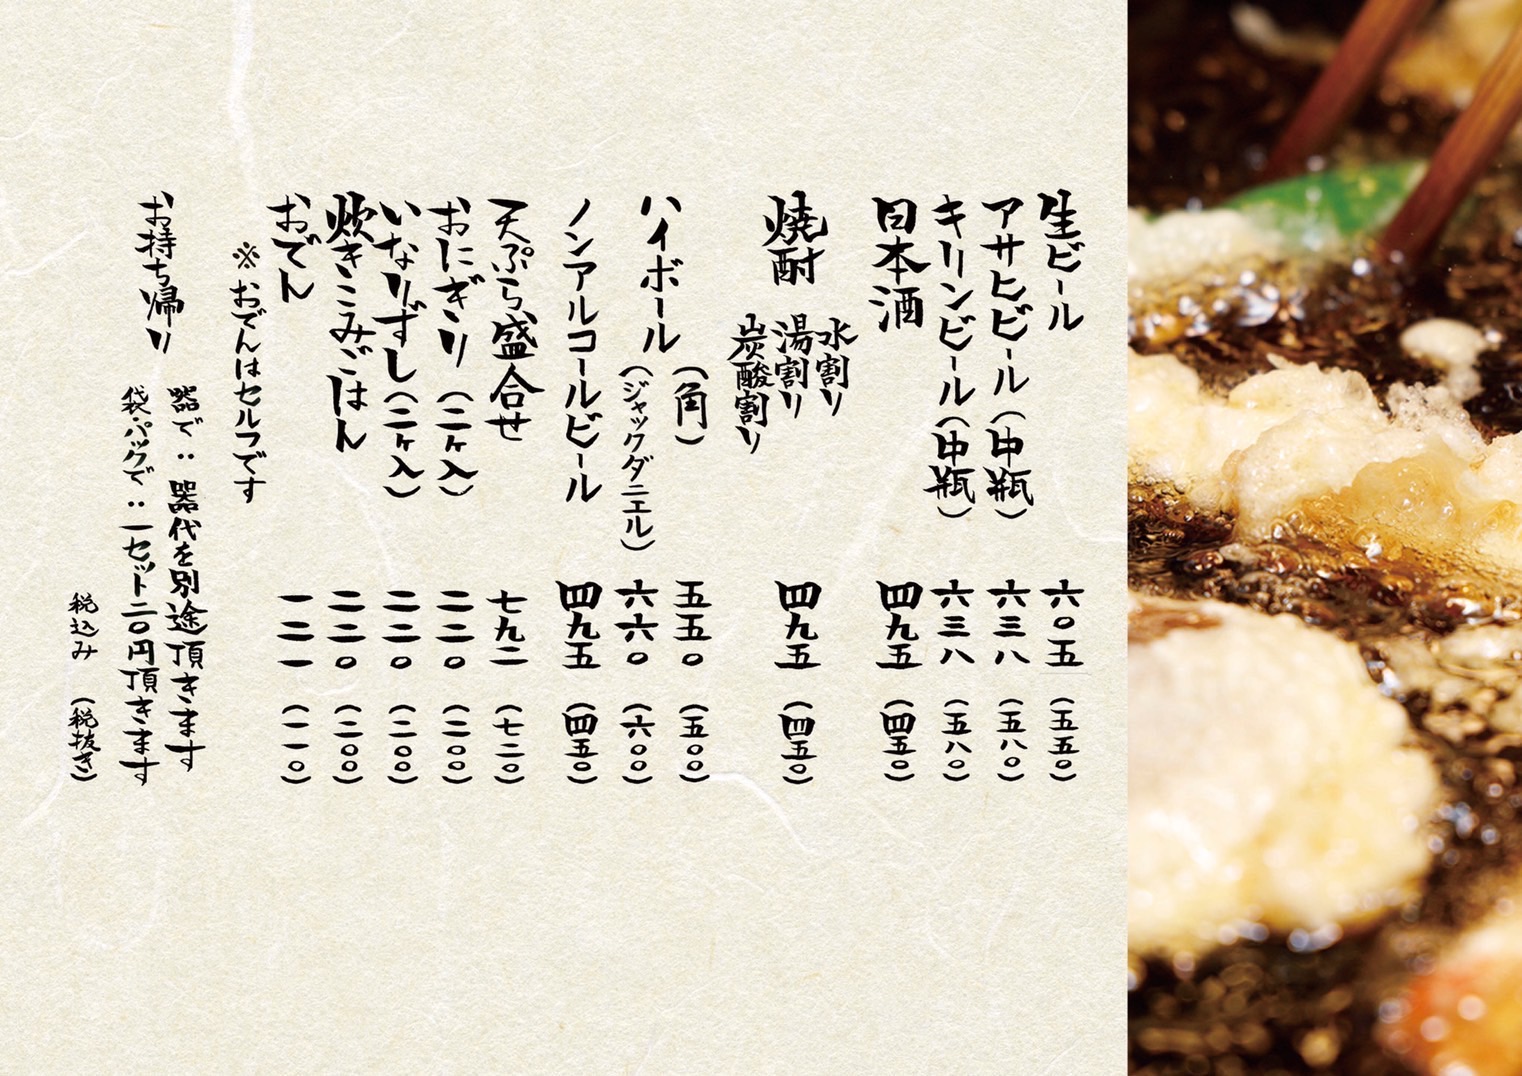 生ビール 六〇五 (五五〇)
アサヒビール(中瓶) 六三八 (五八〇)
キリンビール(中瓶) 六三八 (五八〇)
日本酒 四九五 (四五〇)
焼酎 水割り 湯割り 炭酸割り 四九五 (四五〇)
ハイボール (角) 五五〇 (五〇〇)
(ジャックダニエル) 六六〇 (六〇〇)
ノンアルコールビール 四九五 (四五〇)
天ぷら盛合せ 七九二 (七二〇)
おにぎり(二ヶ入) 二二〇 (二〇〇)
いなりずし(二ヶ入) 二二〇 (二〇〇)
炊きこみごはん 二二〇 (二〇〇)
おでん 一二一 (一一〇)
※おでんはセルフです
お持ち帰り
器で‥器代を別途頂きます
袋・パックで‥一セット二〇円頂きます
税込み (税抜き)